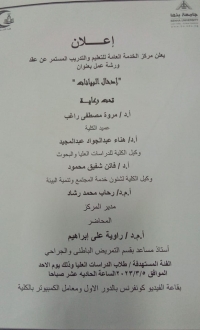 إعـــلان
يعلن مركز الخدمة العامة للتعليم والتدريب المستمر عن عقد
ورشة عمل بعنوان
"إدخال البيانات"
تحت رعاية
أ.د/ مروة مصطفى راغب
عميد الكلية
أ.د/ هناء عبدالجواد عبدالمجيد
وكيل الكلية للدراسات العليا والبحوث
أ.د/ فاتن شفيق محمود
وكيل الكلية لشئون خدمة المجتمع وتنمية البيئة
أ.م.د/ رحاب محمد رشاد
مدير المركز
المحاضر
أ.م.د/ راوية على إبراهيم
أستاذ مساعد بقسم التمريض الباطنى والجراحي
الفئة المستهدفة / طلاب الدراسات العليا وذلك يوم الاحد
الموافق ٢٠٢٣/٣/٥ الساعة الحادية عشر صباحا
بقاعة الفيديو كونفرنس بالدور الاول ومعامل الكمبيوتر بالكلية